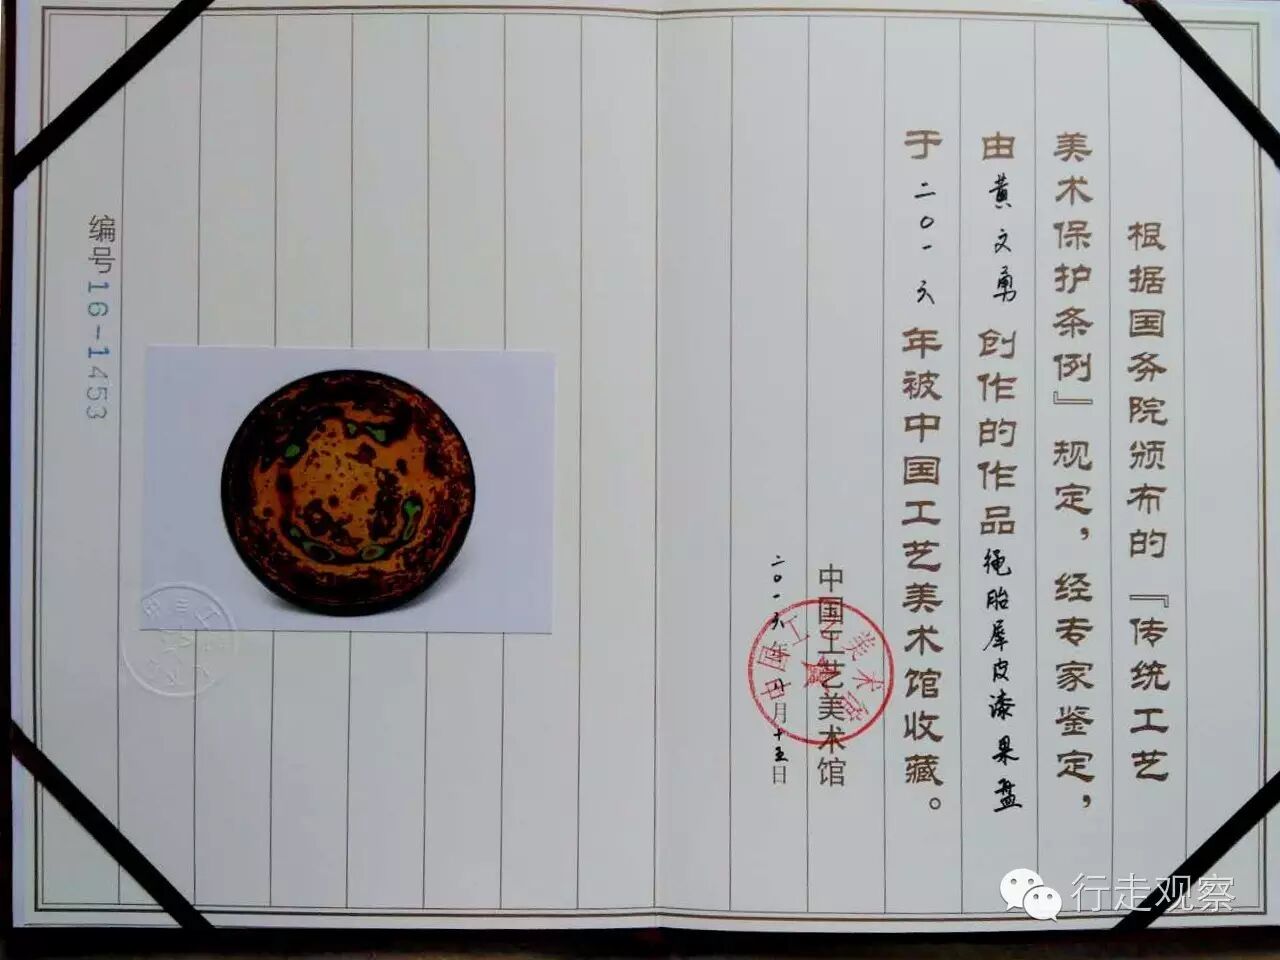 根据国务院颁布的『传统工艺
美术保护条例』规定，经专家鉴定，
由黄文勇创作的作品绳胎犀皮漆果盘
于二〇一六年被中国工艺美术馆收藏。
中国工艺美术馆
二〇一六年 月十五日
中国工艺美术馆
编号16-1453
行走观察